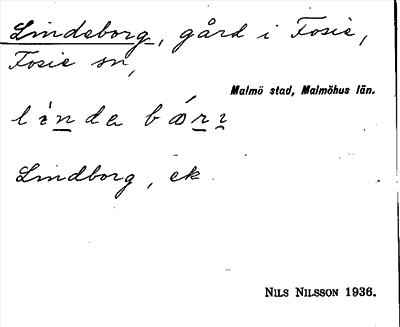 Lindeborg, gård i Fosie,
Fosie sn,
Malmö stad, Malmöhus län.
Lindborg, ek.
NILS NILSSON 1936.